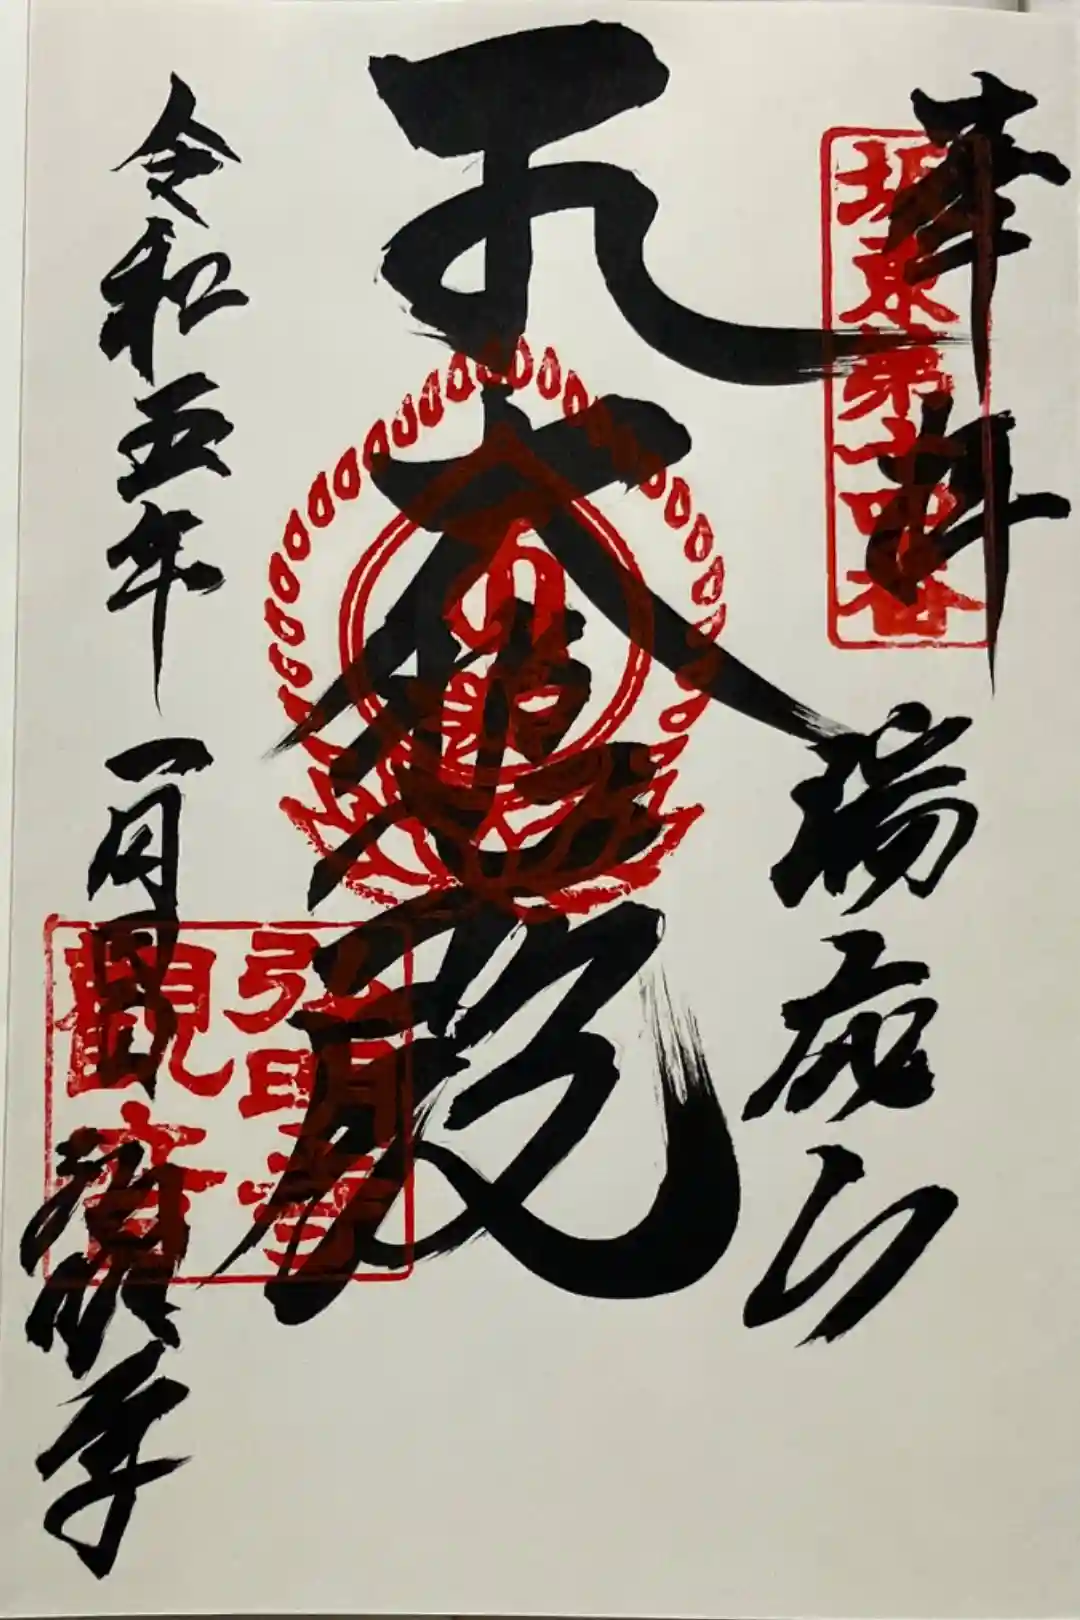 奉拝
坂東第十四番
瑞應山
大悲殿
令和五年一月
弘明寺
弘明寺
觀音